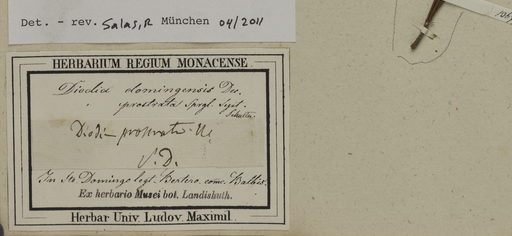 Det. - rev. Salas, R München 04/2011
HERBARIUM REGIUM MONACENSE.
Diodia domingensis Dec.
prostrata Sprgl. Syst.
Schultes
Diodia prostrata
S. D.
In Sto Domingo legt. Bertero. com. Balbis.
Ex herbario Musei bot. Landishuth.
Herbar. Univ. Ludov. Maximil.